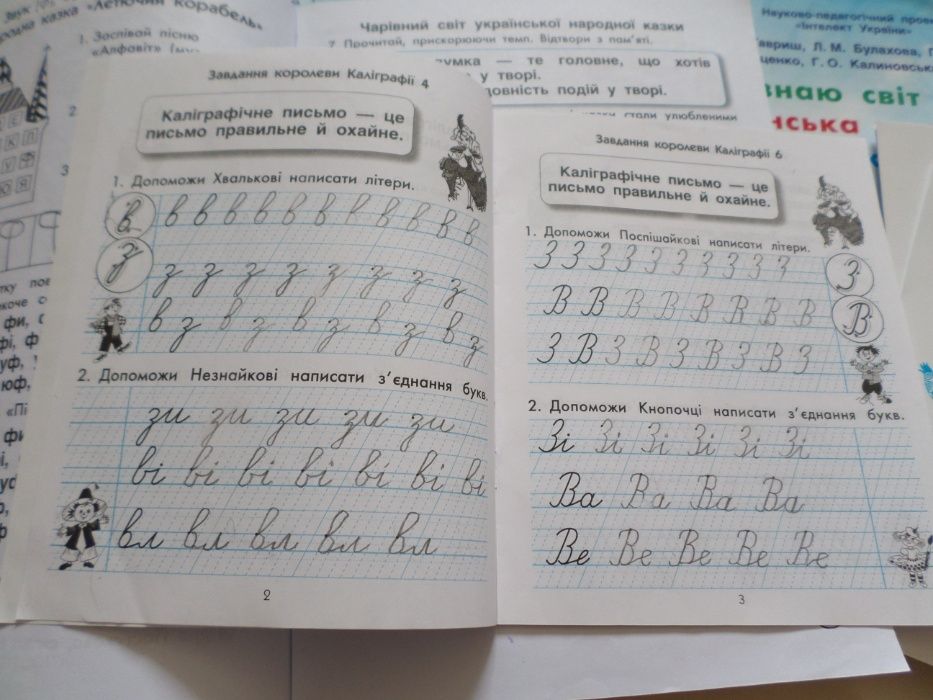 Звук
казка «Летючий корабель»
1. Заспівай пісню
«Алфавіт»
2
3
фи,
фі, ф
уф,
юф,
«Пі
фи
Чарівний світ української народної казки
7 Прочитай, прискорюючи темп. Відтвори з пам'яті.
— те головне, що хотів
у творі.
подій у творі.
стали улюбленими
Науково-педагогічний
«Інтелект України»
Л. М. Булахова,
Г. О. Калиновська
світ
Завдання королеви Каліграфії 4
Каліграфічне письмо — це
письмо правильне й охайне.
1. Допоможи Хвалькові написати літери.
в в в в в в в в в в в в
з з з з з з з з з
в з в з в з в з в з
2. Допоможи Незнайкові написати з'єднання букв.
зи зи зи зи зи
ві ві ві ві ві ві ві
вл вл вл вл вл
2
Завдання королеви Каліграфії 6
Каліграфічне письмо — це
письмо правильне й охайне.
1. Допоможи Поспішайкові написати літери.
З З З З З З З З З З З
В В В В В В В В В
З В З В З В З В З
2. Допоможи Кнопочці написати з'єднання букв.
Зі Зі Зі Зі Зі Зі
Ва Ва Ва Ва
Ве Ве Ве Ве Ве
3